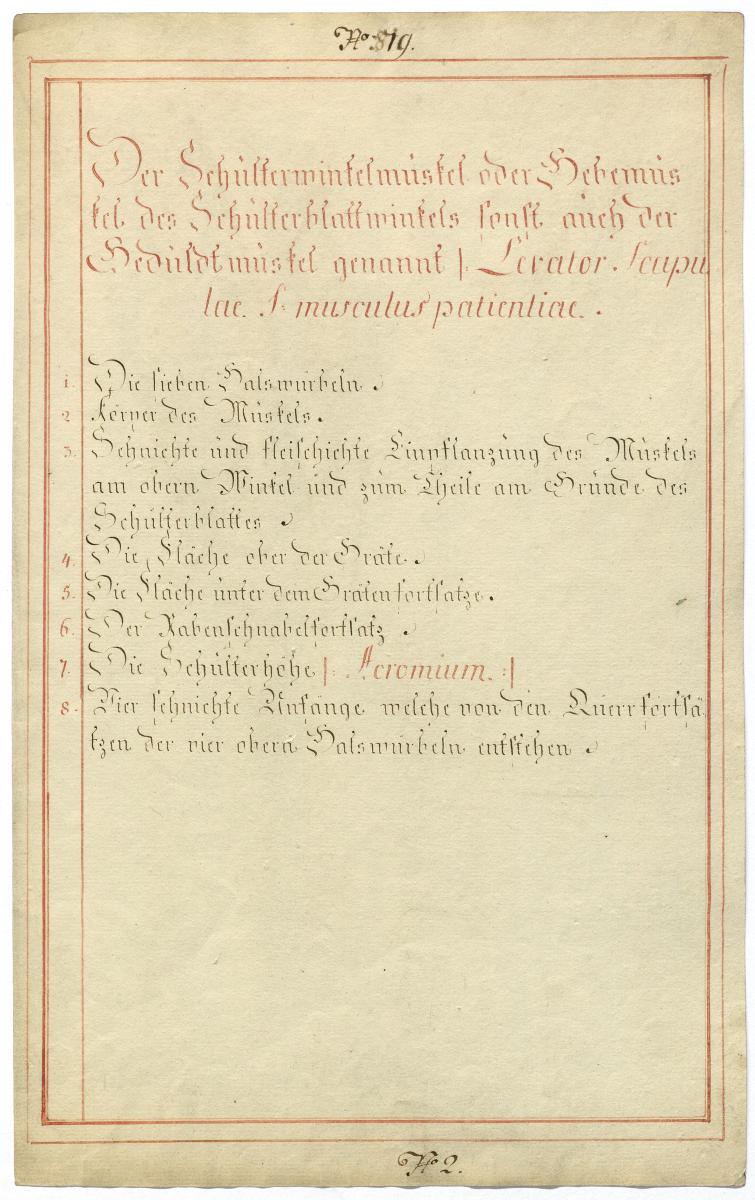 No 819.
Der Schulterwinkelmuskel oder Hebemus
kel des Schulterblattwinkels sonst auch der
Geduldtmuskel genannt |: Levator Scapu
lae. S: musculus patientiae.
1. Die sieben Halswürbeln.
2 Körper des Muskels.
3. Sehnichte und fleischichte Einpflanzung des Muskels
am obern Winkel und zum Theile am Grunde des
Schulterblattes.
4. Die Fläche ober der Gräte.
5. Die Fläche unter dem Grätenfortsatze.
6. Der Rabenschnabelfortsatz.
7. Die Schulterhöhe |: Acromium. :|
8. Vier sehnichte Anfänge welche von den Querrfortsä
tzen der vier obern Halswürbeln entstehen.
No 2.